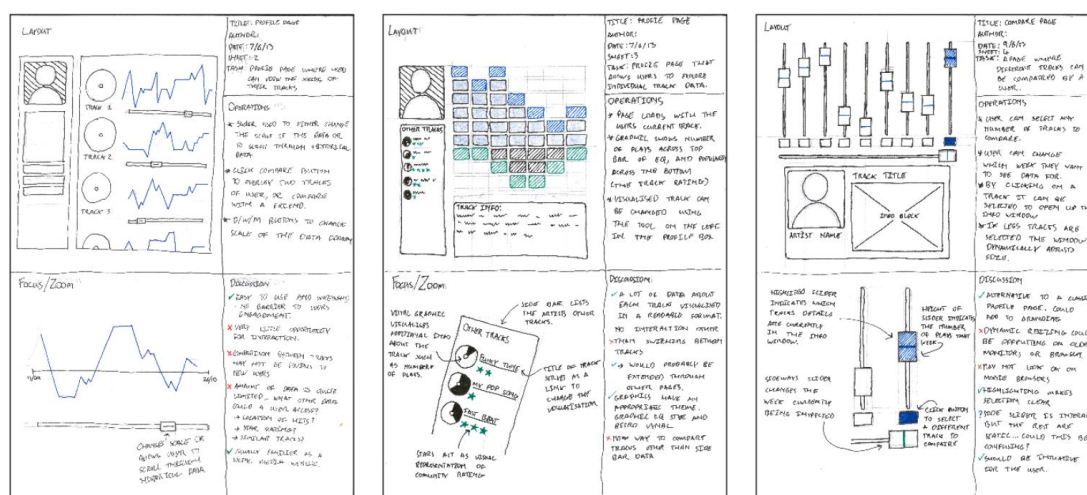 LAYOUT
TRACK 1
TRACK 2
TRACK 3
TITLE: PROFILE PAGE
AUTHOR:
DATE: 7/6/13
SHEET: 2
TASK: PROFILE PAGE WHERE USER
CAN VIEW THE
THEIR TRACKS
OPERATIONS
* SLIDER USED TO EITHER CHANGE
THE SCALE OF THE DATA OR
TO SCROLL THROUGH HISTORICAL
DATA.
* CLICK COMPARE BUTTON
TO OVERLAY TWO TRACKS
OF USER, OR COMPARE
WITH A FRIEND.
* D/W/M BUTTONS TO CHANGE
SCALE OF THE DATA
FOCUS/ZOOM
CHANGES SCALE OR
ALLOWS USER TO
SCROLL THROUGH
HISTORICAL DATA
DISCUSSION:
EASY TO USE AND
NO BARRIER TO USERS
ENGAGEMENT.
VERY LITTLE OPPORTUNITY
FOR INTERACTION.
COMPARISON BETWEEN TRACKS
MAY NOT BE
NEW USERS
AMOUNT OF DATA IS QUITE
LIMITED... WHAT OTHER DATA
COULD A USER ACCESS?
→ LOCATION OF HITS?
→ STAR RATINGS?
→ SIMILAR TRACKS?
FAMILIAR AS A
MEDIA
LAYOUT
OTHER TRACKS
TRACK INFO:
TITLE: PROFILE PAGE
AUTHOR:
DATE: 7/6/13
SHEET: 3
TASK: PROFILE PAGE THAT
ALLOWS USERS TO EXPLORE
INDIVIDUAL TRACK DATA.
OPERATIONS
* PAGE LOADS WITH THE
USERS CURRENT TRACK.
* GRAPHIC SHOWS NUMBER
OF PLAYS ACROSS TOP
BAR OF EQ, AND
ACROSS THE BOTTOM
(THE TRACK RATING)
* VISUALISED TRACK CAN
BE CHANGED USING
THE TOOL ON THE LEFT
IN THE PROFILE BOX
FOCUS/ZOOM
SIDE BAR LISTS
THE ARTISTS OTHER
TRACKS.
VINYL GRAPHIC
VISUALISES
ADDITIONAL INFO
ABOUT THE
TRACK SUCH
AS NUMBER
OF PLAYS.
OTHER TRACKS
FUNKY TUNE
MY POP SONG
TITLE OF TRACK
SERVES AS A
LINK TO
CHANGE THE
VISUALISATION.
STARS ACT AS VISUAL
REPRESENTATION OF
COMMUNITY RATING
DISCUSSION:
A LOT OF DATA ABOUT
EACH TRACK VISUALISED
IN A READABLE FORMAT.
NO INTERACTION OTHER
THAN SWITCHING BETWEEN
TRACKS
→ WOULD PROBABLY BE
EXTENDED THROUGH
OTHER PAGES.
GRAPHICS HAVE AN
APPROPRIATE THEME.
GRAPHIC EQ STYLE AND
RETRO VINYL
NOW WAY TO COMPARE
TRACKS OTHER THAN SIDE
BAR DATA
LAYOUT
TRACK TITLE
INFO BLOCK
ARTIST NAME
TITLE: COMPARE PAGE
AUTHOR:
DATE: 9/6/13
SHEET: 4
TASK: A PAGE WHERE
DIFFERENT TRACKS CAN
BE COMPARED BY A
USER.
OPERATIONS
* USER CAN SELECT ANY
NUMBER OF TRACKS TO
COMPARE.
* USER CAN CHANGE
WHICH WEEK THEY WANT
TO SEE DATA FOR.
* BY CLICKING ON A
TRACK IT CAN BE
SELECTED TO OPEN UP THE
INFO WINDOW
* IF LESS TRACKS ARE
SELECTED THE WINDOW
DYNAMICALLY ADJUSTS
SIZE.
HIGHLIGHTED SLIDER
INDICATES WHICH
TRACKS DETAILS
ARE CURRENTLY
IN THE INFO
WINDOW.
HEIGHT OF
SLIDER INDICATES
THE NUMBER
OF PLAYS THAT
WEEK
SIDEWAYS SLIDER
CHANGES THE
WEEK CURRENTLY
BEING INSPECTED
CLICK BUTTON
TO SELECT
A DIFFERENT
TRACK TO
COMPARE
DISCUSSION
ALTERNATIVE TO A
PROFILE PAGE. COULD
ADD TO BRANDING
DYNAMIC RESIZING COULD
BE OFFPUTTING ON OLDER
MONITORS OR BROWSERS
MAY NOT LOOK OK ON
MOBILE BROWSERS
HIGHLIGHTING MAKES
SELECTION CLEAR
SIDE SLIDER IS
BUT THE REST ARE
STATIC... COULD THIS BE
CONFUSING?
SHOULD BE INTUITIVE
FOR THE USER.